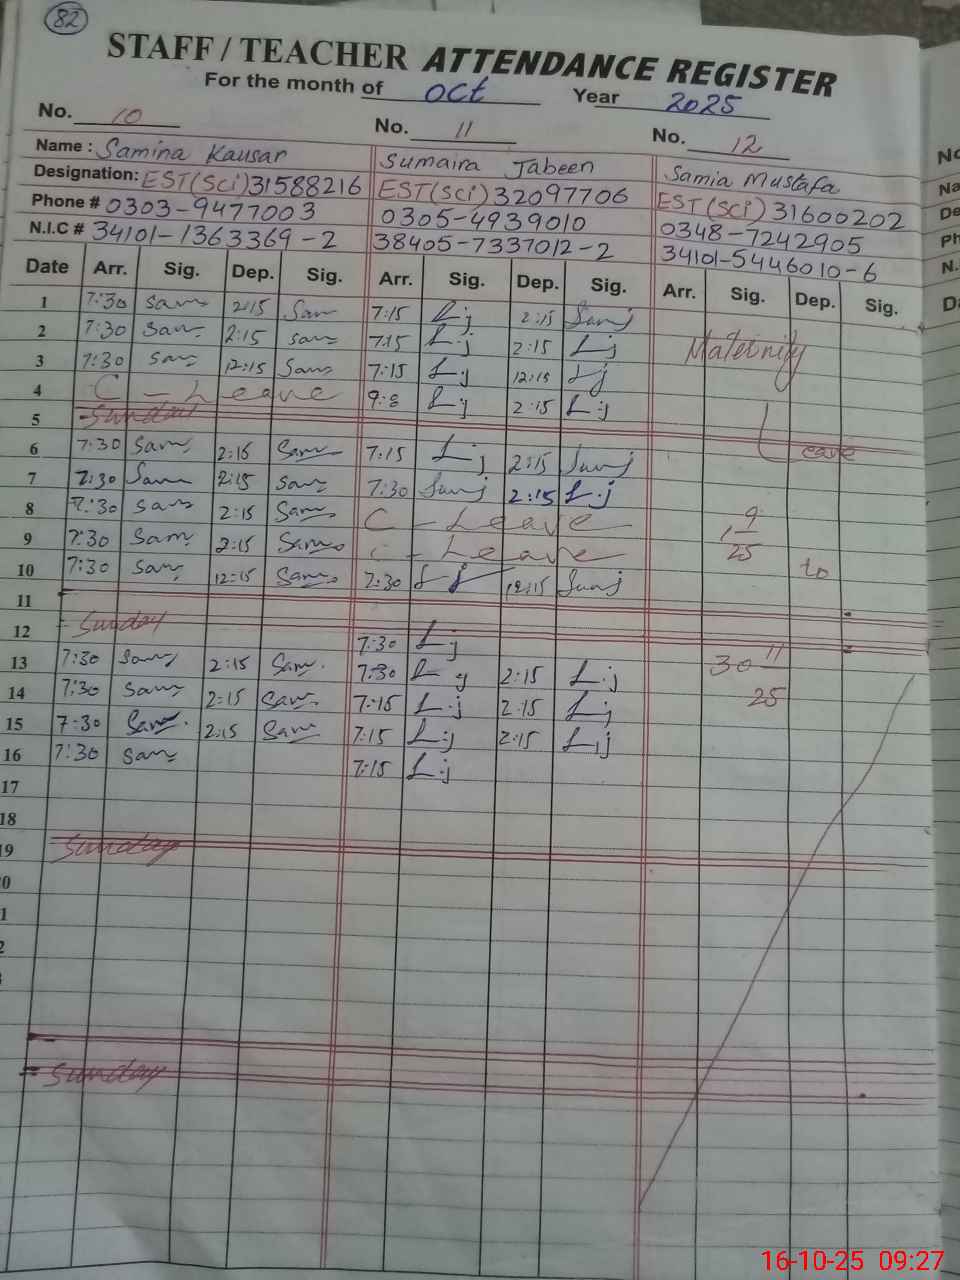 82
STAFF / TEACHER ATTENDANCE REGISTER
For the month of Oct Year 2025
No. 10 No. 11 No. 12
Name : Samina Kausar Sumaira Jabeen Samia Mustafa
Designation: EST(Sci) 31588216 EST(Sci) 32097706 EST(Sci) 31600202
Phone # 0303-9477003 0305-4939010 0348-7242905
N.I.C # 34101-1363369-2 38405-7337012-2 34101-5446010-6
Date Arr. Sig. Dep. Sig. Arr. Sig. Dep. Sig. Arr. Sig. Dep. Sig.
1 7:30 Sam 2:15 Sam 7:15 L.j 2:15 Sumj
2 7:30 Sam 2:15 Sam 7:15 L.j 2:15 L.j Maternity
3 7:30 Sam 12:15 Sam 7:15 L.j 12:15 L.j
4 C - Leave L.j 2:15 L.j
5 Sunday Leave
6 7:30 Sam 2:15 Sam 7:15 L.j 2:15 Sumj
7 7:30 Sam 2:15 Sam 7:30 Sumj 2:15 L.j
8 7:30 Sam 2:15 Sam C - Leave 9
9 7:30 Sam 2:15 Sam C - Leave 25
10 7:30 Sam 12:15 Sam 7:30 12:15 Sumj to
11
12 Sunday 7:30 L.j
13 7:30 Sam 2:15 Sam 7:30 L.j 2:15 L.j 30 11
14 7:30 Sam 2:15 Sam 7:15 L.j 2:15 L.j 25
15 7:30 Sam 2:15 Sam 7:15 L.j 2:15 L.j
16 7:30 Sam 7:15 L.j
17
18
9 Sunday
0
1
2
Sunday
16-10-25 09:27